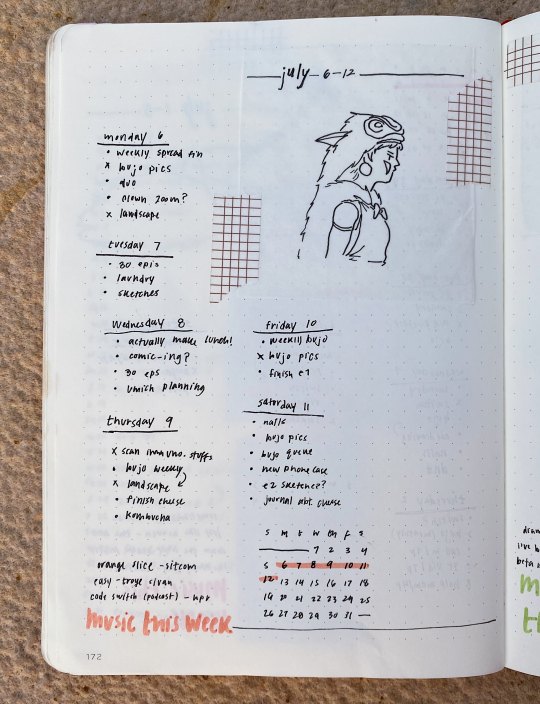 july 6-12
monday 6
• weekly spread fin
x bujo pics
• duo
• clown zoom?
x landscape
tuesday 7
• 30 epis
• laundry
• sketches
wednesday 8
• actually make lunch!
• comic-ing?
• 30 eps
• umich planning
thursday 9
x scan immuno. stuffs
• bujo weekly
x landscape
• finish cheese
• kombucha
friday 10
• weekly bujo
x bujo pics
• finish e1
saturday 11
• nails
• bujo pics
• bujo queue
• new phone case
• e2 sketches?
• journal abt. cheese
s m t w th f s
1 2 3 4
5 6 7 8 9 10 11
12 13 14 15 16 17 18
19 20 21 22 23 24 25
26 27 28 29 30 31
orange slice - sitcom
easy - troye sivan
code switch (podcast) - npr
music this week
172